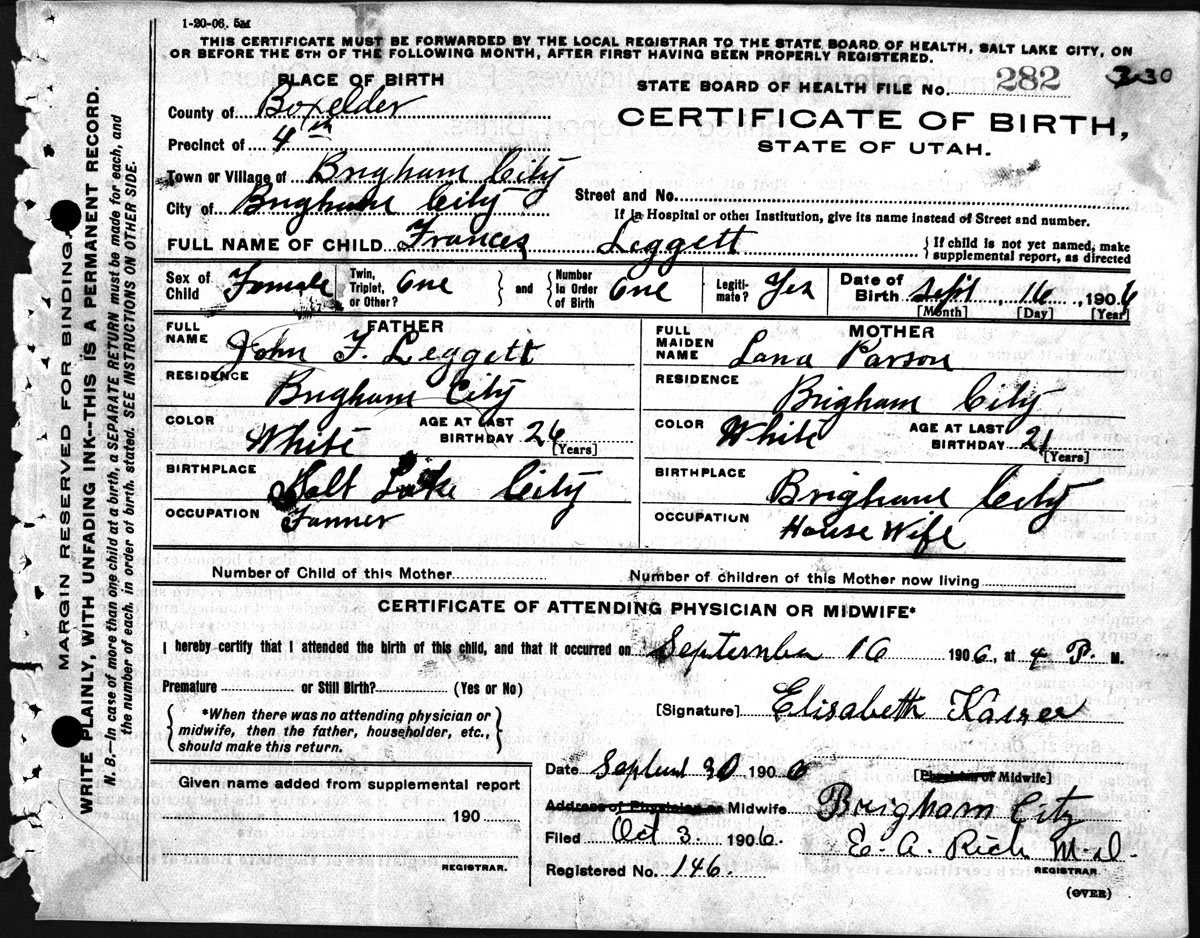 1-20-06. 5M
THIS CERTIFICATE MUST BE FORWARDED BY THE LOCAL REGISTRAR TO THE STATE BOARD OF HEALTH, SALT LAKE CITY, ON
OR BEFORE THE 5TH OF THE FOLLOWING MONTH, AFTER FIRST HAVING BEEN PROPERLY REGISTERED.
PLACE OF BIRTH
STATE BOARD OF HEALTH FILE No. 282
County of Boxelder
CERTIFICATE OF BIRTH,
STATE OF UTAH.
Precinct of 4th
Town or Village of Brigham City
City of Brigham City
Street and No.
If in Hospital or other Institution, give its name instead of Street and number.
FULL NAME OF CHILD Frances Leggett
If child is not yet named, make
supplemental report, as directed
Sex of Child Female Twin, Triplet, or Other? One and Number In Order of Birth One Legiti-mate? Yes Date of Birth Sept 16, 1906
[Month] [Day] [Year]
FATHER
FULL NAME John F. Leggett
RESIDENCE Brigham City
COLOR White AGE AT LAST BIRTHDAY 26 [Years]
BIRTHPLACE Salt Lake City
OCCUPATION Farmer
MOTHER
FULL MAIDEN NAME Lana Parson
RESIDENCE Brigham City
COLOR White AGE AT LAST BIRTHDAY 21 [Years]
BIRTHPLACE Brigham City
OCCUPATION House Wife
Number of Child of this Mother
Number of children of this Mother now living
CERTIFICATE OF ATTENDING PHYSICIAN OR MIDWIFE*
I hereby certify that I attended the birth of this child, and that it occurred on September 16 1906, at 4 P. M.
Premature or Still Birth? (Yes or No)
*When there was no attending physician or
midwife, then the father, householder, etc.,
should make this return.
[Signature] Elisabeth Kaiser
[Physician or Midwife]
Date 30 1906
Address of Physician or Midwife Brigham City
Filed Oct 3. 1906. E. A. Rich M.D.
REGISTRAR.
Registered No. 146.
(OVER)
Given name added from supplemental report
190
REGISTRAR.
MARGIN RESERVED FOR BINDING.
WRITE PLAINLY, WITH UNFADING INK--THIS IS A PERMANENT RECORD.
N. B.—In case of more than one child at a birth, a SEPARATE RETURN must be made for each, and
the number of each, in order of birth, stated. SEE INSTRUCTIONS ON OTHER SIDE.